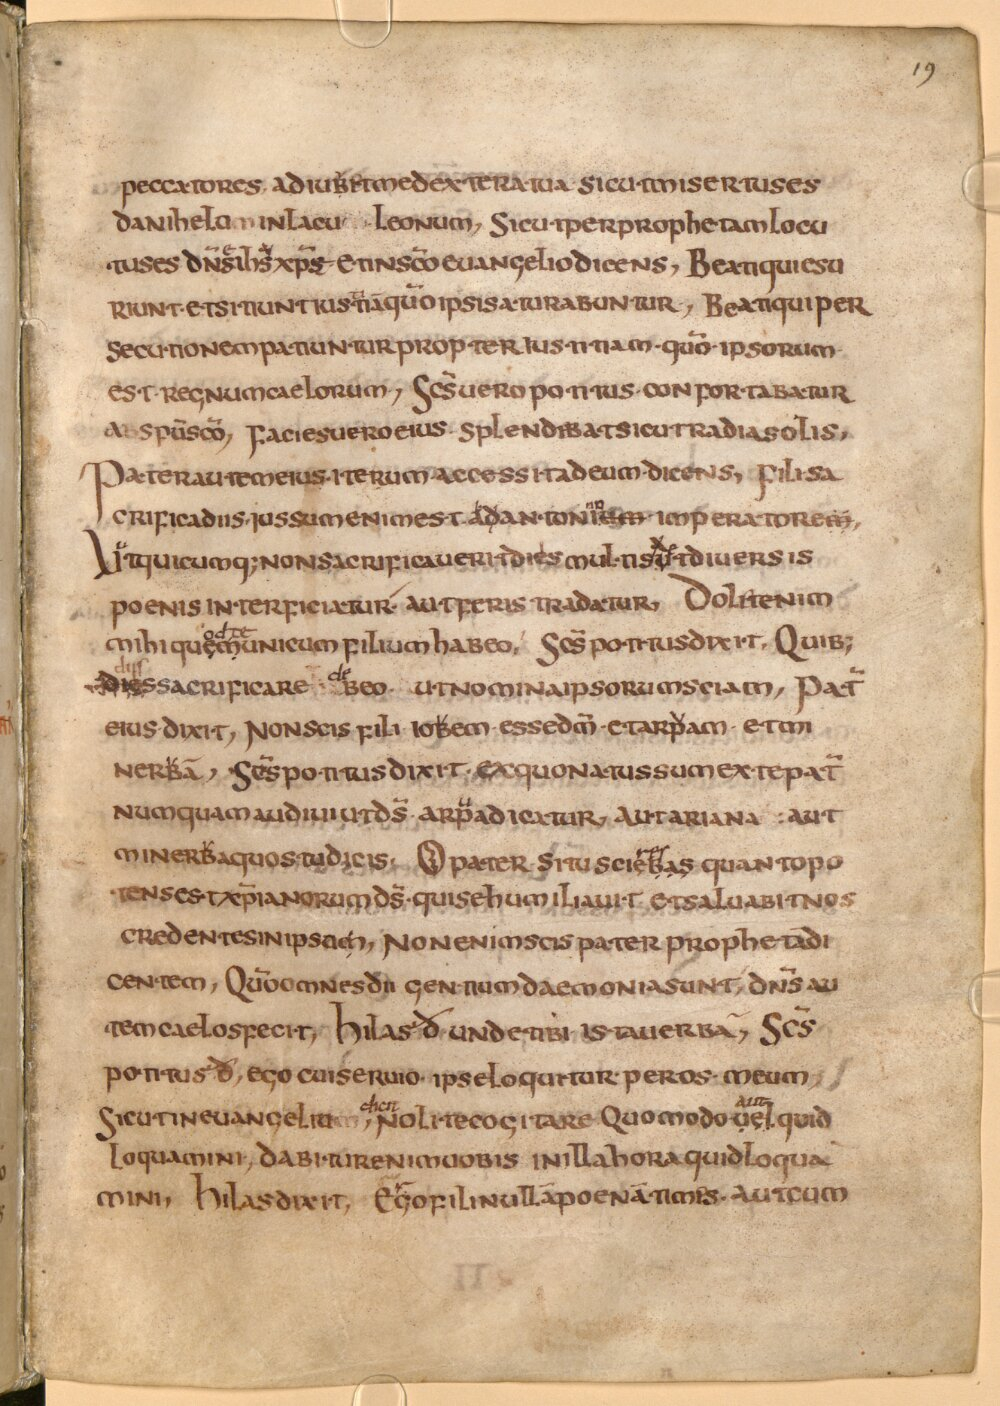 19
peccatores, adiubet me dextera tua sicut misertus es
danihelu in lacu leonum, Sicut per prophetam locu
tus es dn̄s ihs̄ xps̄ et in sc̄o euangelio dicens, Beati qui esu
riunt et sitiunt iustitiā qūo ipsi saturabuntur, Beati qui per
secutionem patiuntur propter iustitiam qūo ipsorum
est regnum caelorum, Sc̄s uero potitus confortabatur
a spū sc̄o, facies uero eius splendebat sicut radia solis,
Pater autem eius iterum accessit ad eum dicens, fili sa
crifica diis iussum enim est ad antoni imperatorem,
Ut quicumq; non sacrificauerit dies multis et diuersis
poenis interficiatur aut feris tradatur, Dolet enim
mihi quem unicum filium habeo, Sc̄s potitus dixit, Quib;
diis sacrificare debeo ut nomina ipsorum sciam, Pat̄
eius dixit, Non scis fili iobem esse dm̄ et arpam et mi
nerbā, Sc̄s potitus dixit ex quo natus sum ex te pat̄
numquam audiui ut ds̄ arpa dicatur, aut ariana aut
minerba quos tu dicis. O pater si tu sciebas quanto po
tens est xp̄ianorum ds̄ qui se humiliauit et saluabit nos
credentes in ipsum, Non enim scis pater prophetā di
centem, Qūo omnes dii gentium daemonia sunt, dn̄s au
tem caelos fecit, hilas d̄ unde tibi ista uerba, Sc̄s
potitus d̄, ego cui seruio ipse loquitur per os meum,
Sicut in euangelium dicit, Nolite cogitare Quomodo aut uel quid
loquamini, dabitur enim uobis in illa hora quid loqua
mini, hilas dixit, Ergo fili nullā poenā times aut cum